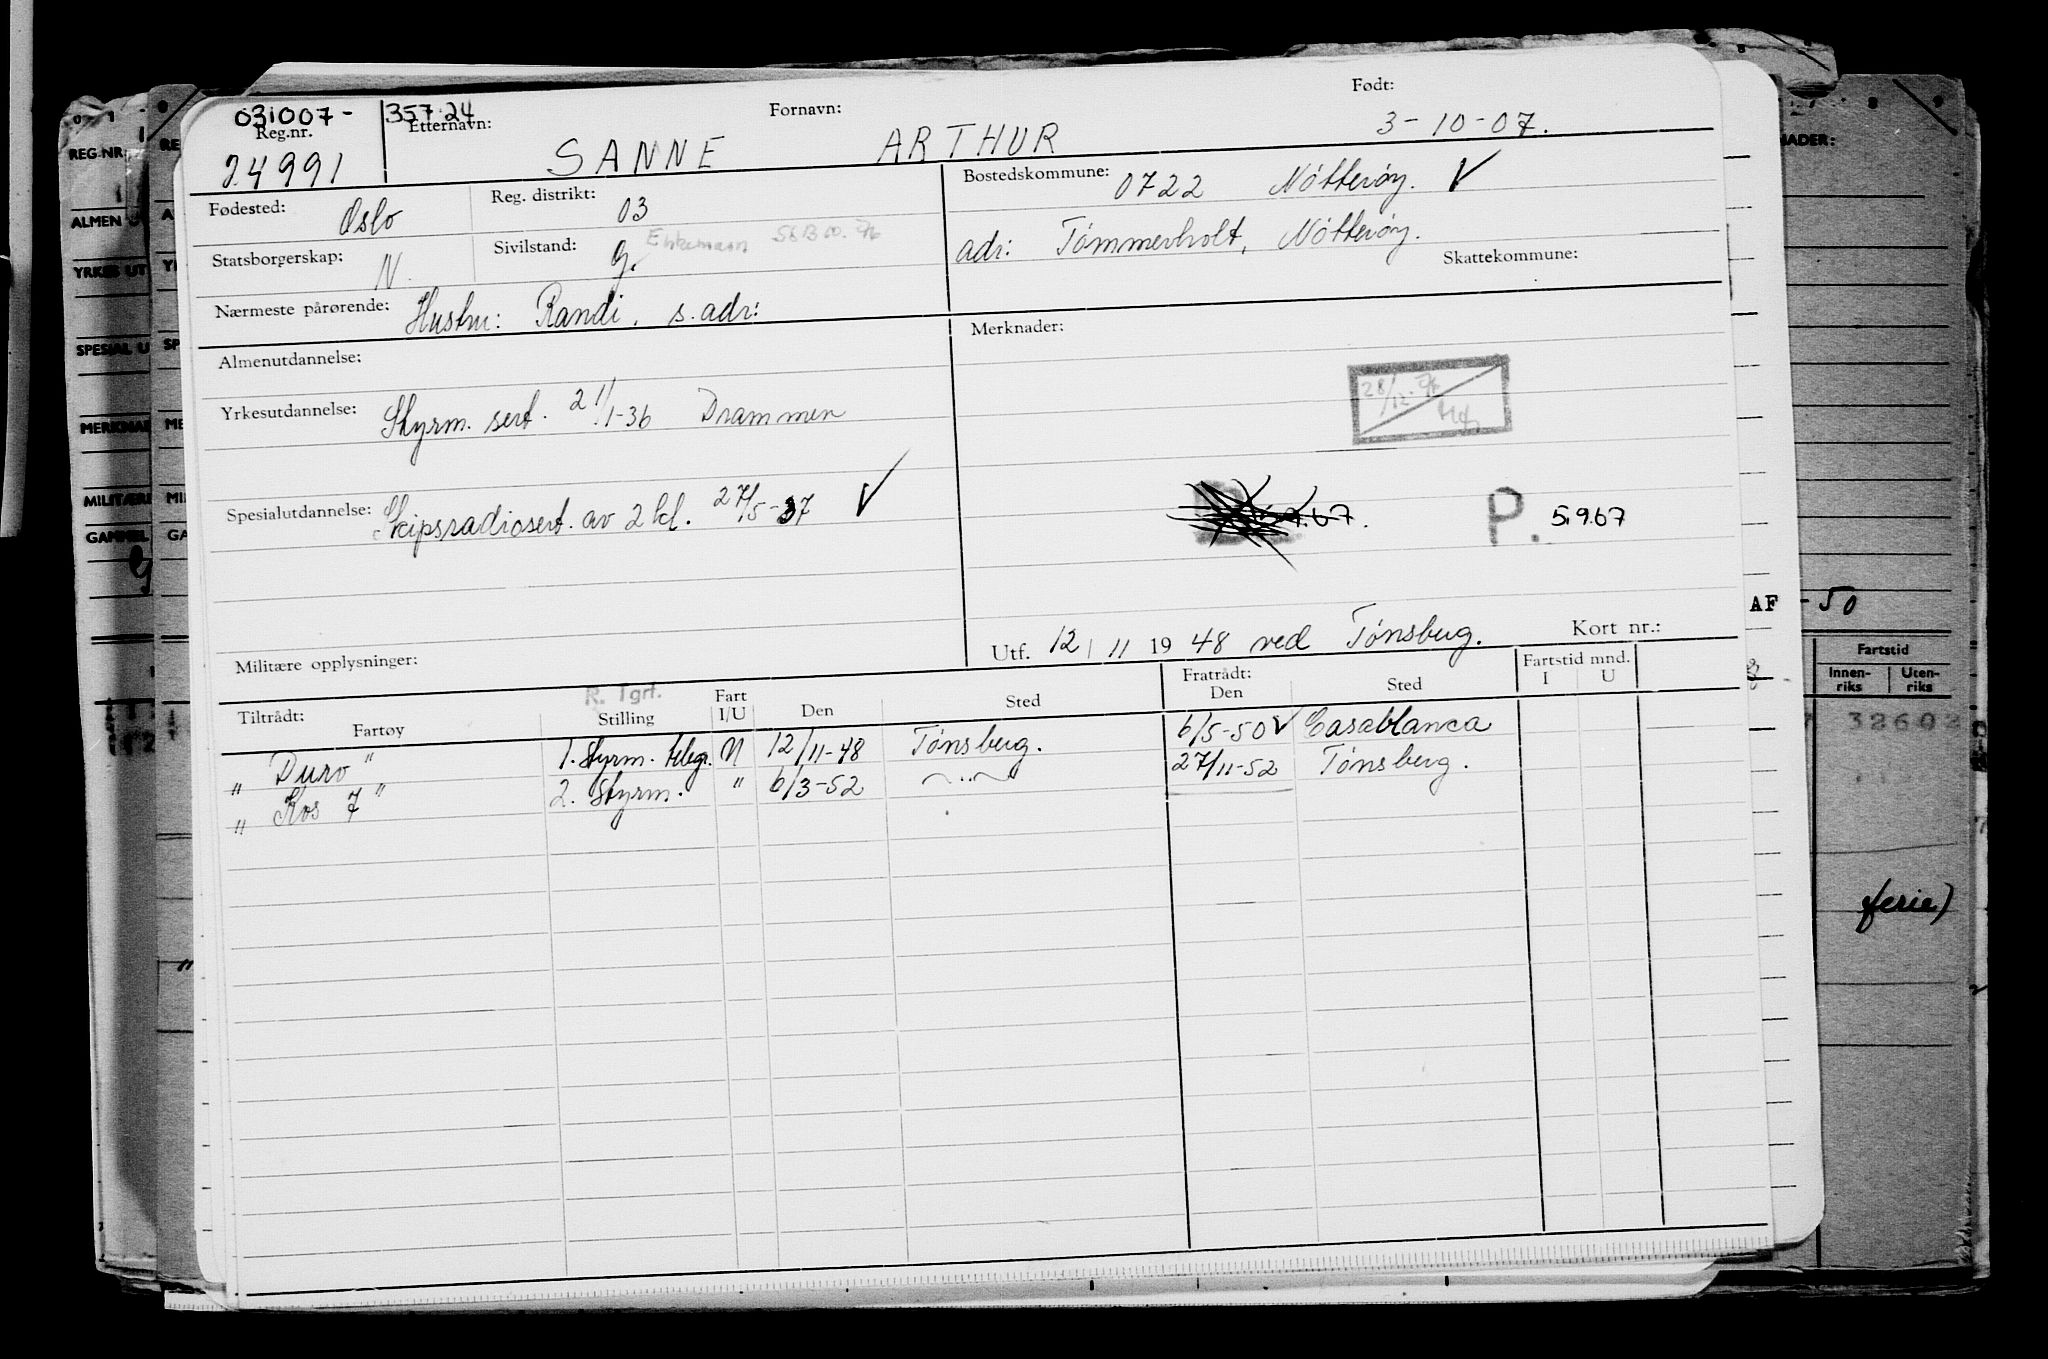 031007-35724
Reg.nr. Etternavn: Fornavn: Født:
24991 SANNE ARTHUR 3-10-07.
Fødested: Oslo Reg. distrikt: 03 Bostedskommune: 0722 Nøtterøy. ✓
Statsborgerskap: N. Sivilstand: g. Enkemann
adr: Tømmerholt, Nøtterøy.
Skattekommune:
Nærmeste pårørende: Hustru: Randi, s. adr:
Merknader:
Almenutdannelse:
Yrkesutdannelse: Styrm. sert. 21/1-36 Drammen
Spesialutdannelse: Skipsradiosert. av 2 kl. 27/5-37 ✓
5.9.67. P. 5.9.67
Utf. 12/11 1948 ved Tønsberg. Kort nr.:
Militære opplysninger:
R. Tgrf.
Tiltrådt: Fratrådt: Fartstid mnd.
Fartøy Stilling Fart I/U Den Sted Den Sted I U
" Duro " 1. styrm. telegr. U 12/11-48 Tønsberg. 6/5-50 ✓ Casablanca
" Kos 7 " 2. styrm. " 6/3-52 —"— 27/11-52 Tønsberg.
REG.NR.
ALMEN U
YRKES UT
SPESIAL U
MERKNAD
MILITÆRE
GAMMEL
NADER:
AF -50
Fartstid
Innen-riks Uten-riks
32602
ferie)